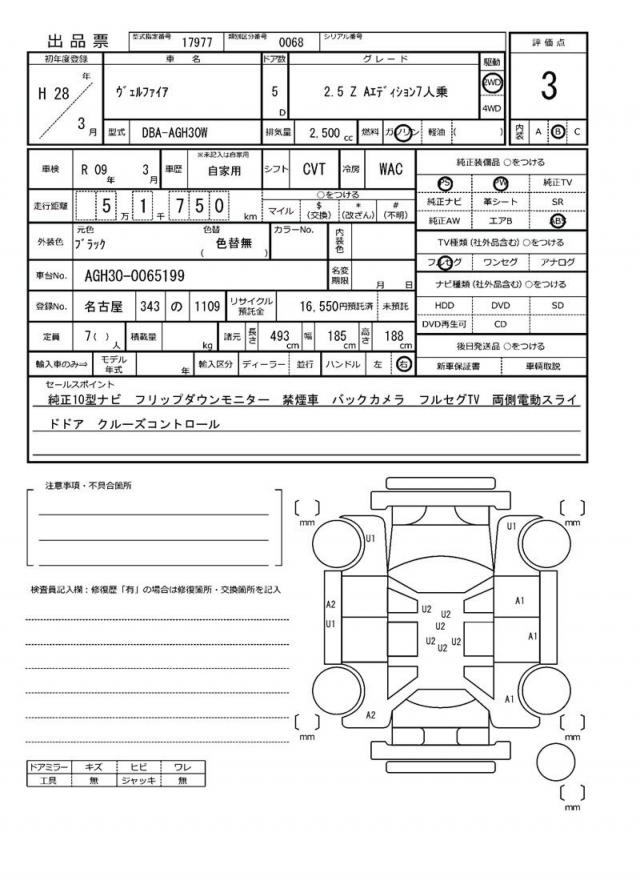 出品票 型式指定番号 17977 類別区分番号 0068 シリアル番号
初年度登録 車名 ドア数 グレード 駆動 評価点
H 28 年 3 月 ヴェルファイア 5 D 2.5 Z Aエディション7人乗 2WD 4WD 3
型式 DBA-AGH30W 排気量 2,500 cc 燃料 ガソリン 軽油 ( ) 内装 A B C
車検 R 09 年 3 月 車歴 ※未記入は自家用 自家用 シフト CVT 冷房 WAC
走行距離 5 万 1 千 7 5 0 km ○をつける マイル $ (交換) * (改ざん) # (不明)
外装色 元色 ブラック 色替 ( 色替無 ) カラーNo. 内装色
車台No. AGH30-0065199 名変期限 月 日
登録No. 名古屋 343 の 1109 リサイクル預託金 16,550円預託済 未預託
定員 7( )人 積載量 kg 諸元 長さ 493 cm 幅 185 cm 高さ 188 cm
輸入車のみ⇒ モデル年式 年 輸入区分 ディーラー 並行 ハンドル 左 右
純正装備品 ○をつける
PS PW 純正TV
純正ナビ 革シート SR
純正AW エアB ABS
TV種類(社外品含む)○をつける
フルセグ ワンセグ アナログ
ナビ種類(社外品含む)○をつける
HDD DVD SD
DVD再生可 CD
後日発送品 ○をつける
新車保証書 車輌取説
セールスポイント
純正10型ナビ フリップダウンモニター 禁煙車 バックカメラ フルセグTV 両側電動スライ
ドドア クルーズコントロール
注意事項・不具合箇所
検査員記入欄:修復歴「有」の場合は修復箇所・交換箇所を記入
ドアミラー キズ ヒビ ワレ
工具 無 ジャッキ 無
[ ] mm
[ ] mm
U1
U1
A2
U1
U2
U2
U2
U2
U2
U2
A1
A1
A2
A1
[ ] mm
[ ] mm
[ ] mm